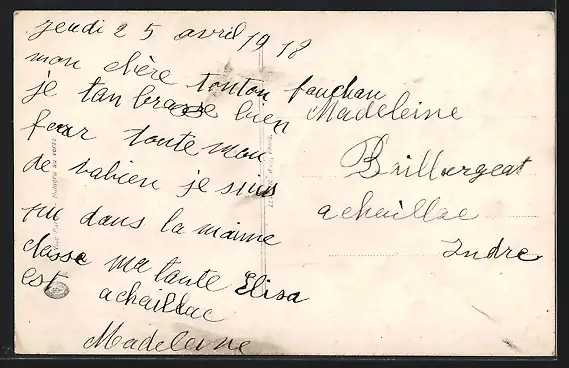 jeudi 25 avril 1918
mon chère tonton fauchan
je tan brasse bien
four toute mon
de vabien je suis
pu dans la maime
classe ma tante Elisa
est achaillac
Madeleine
Madeleine
Baillargeat
achaillac
Indre